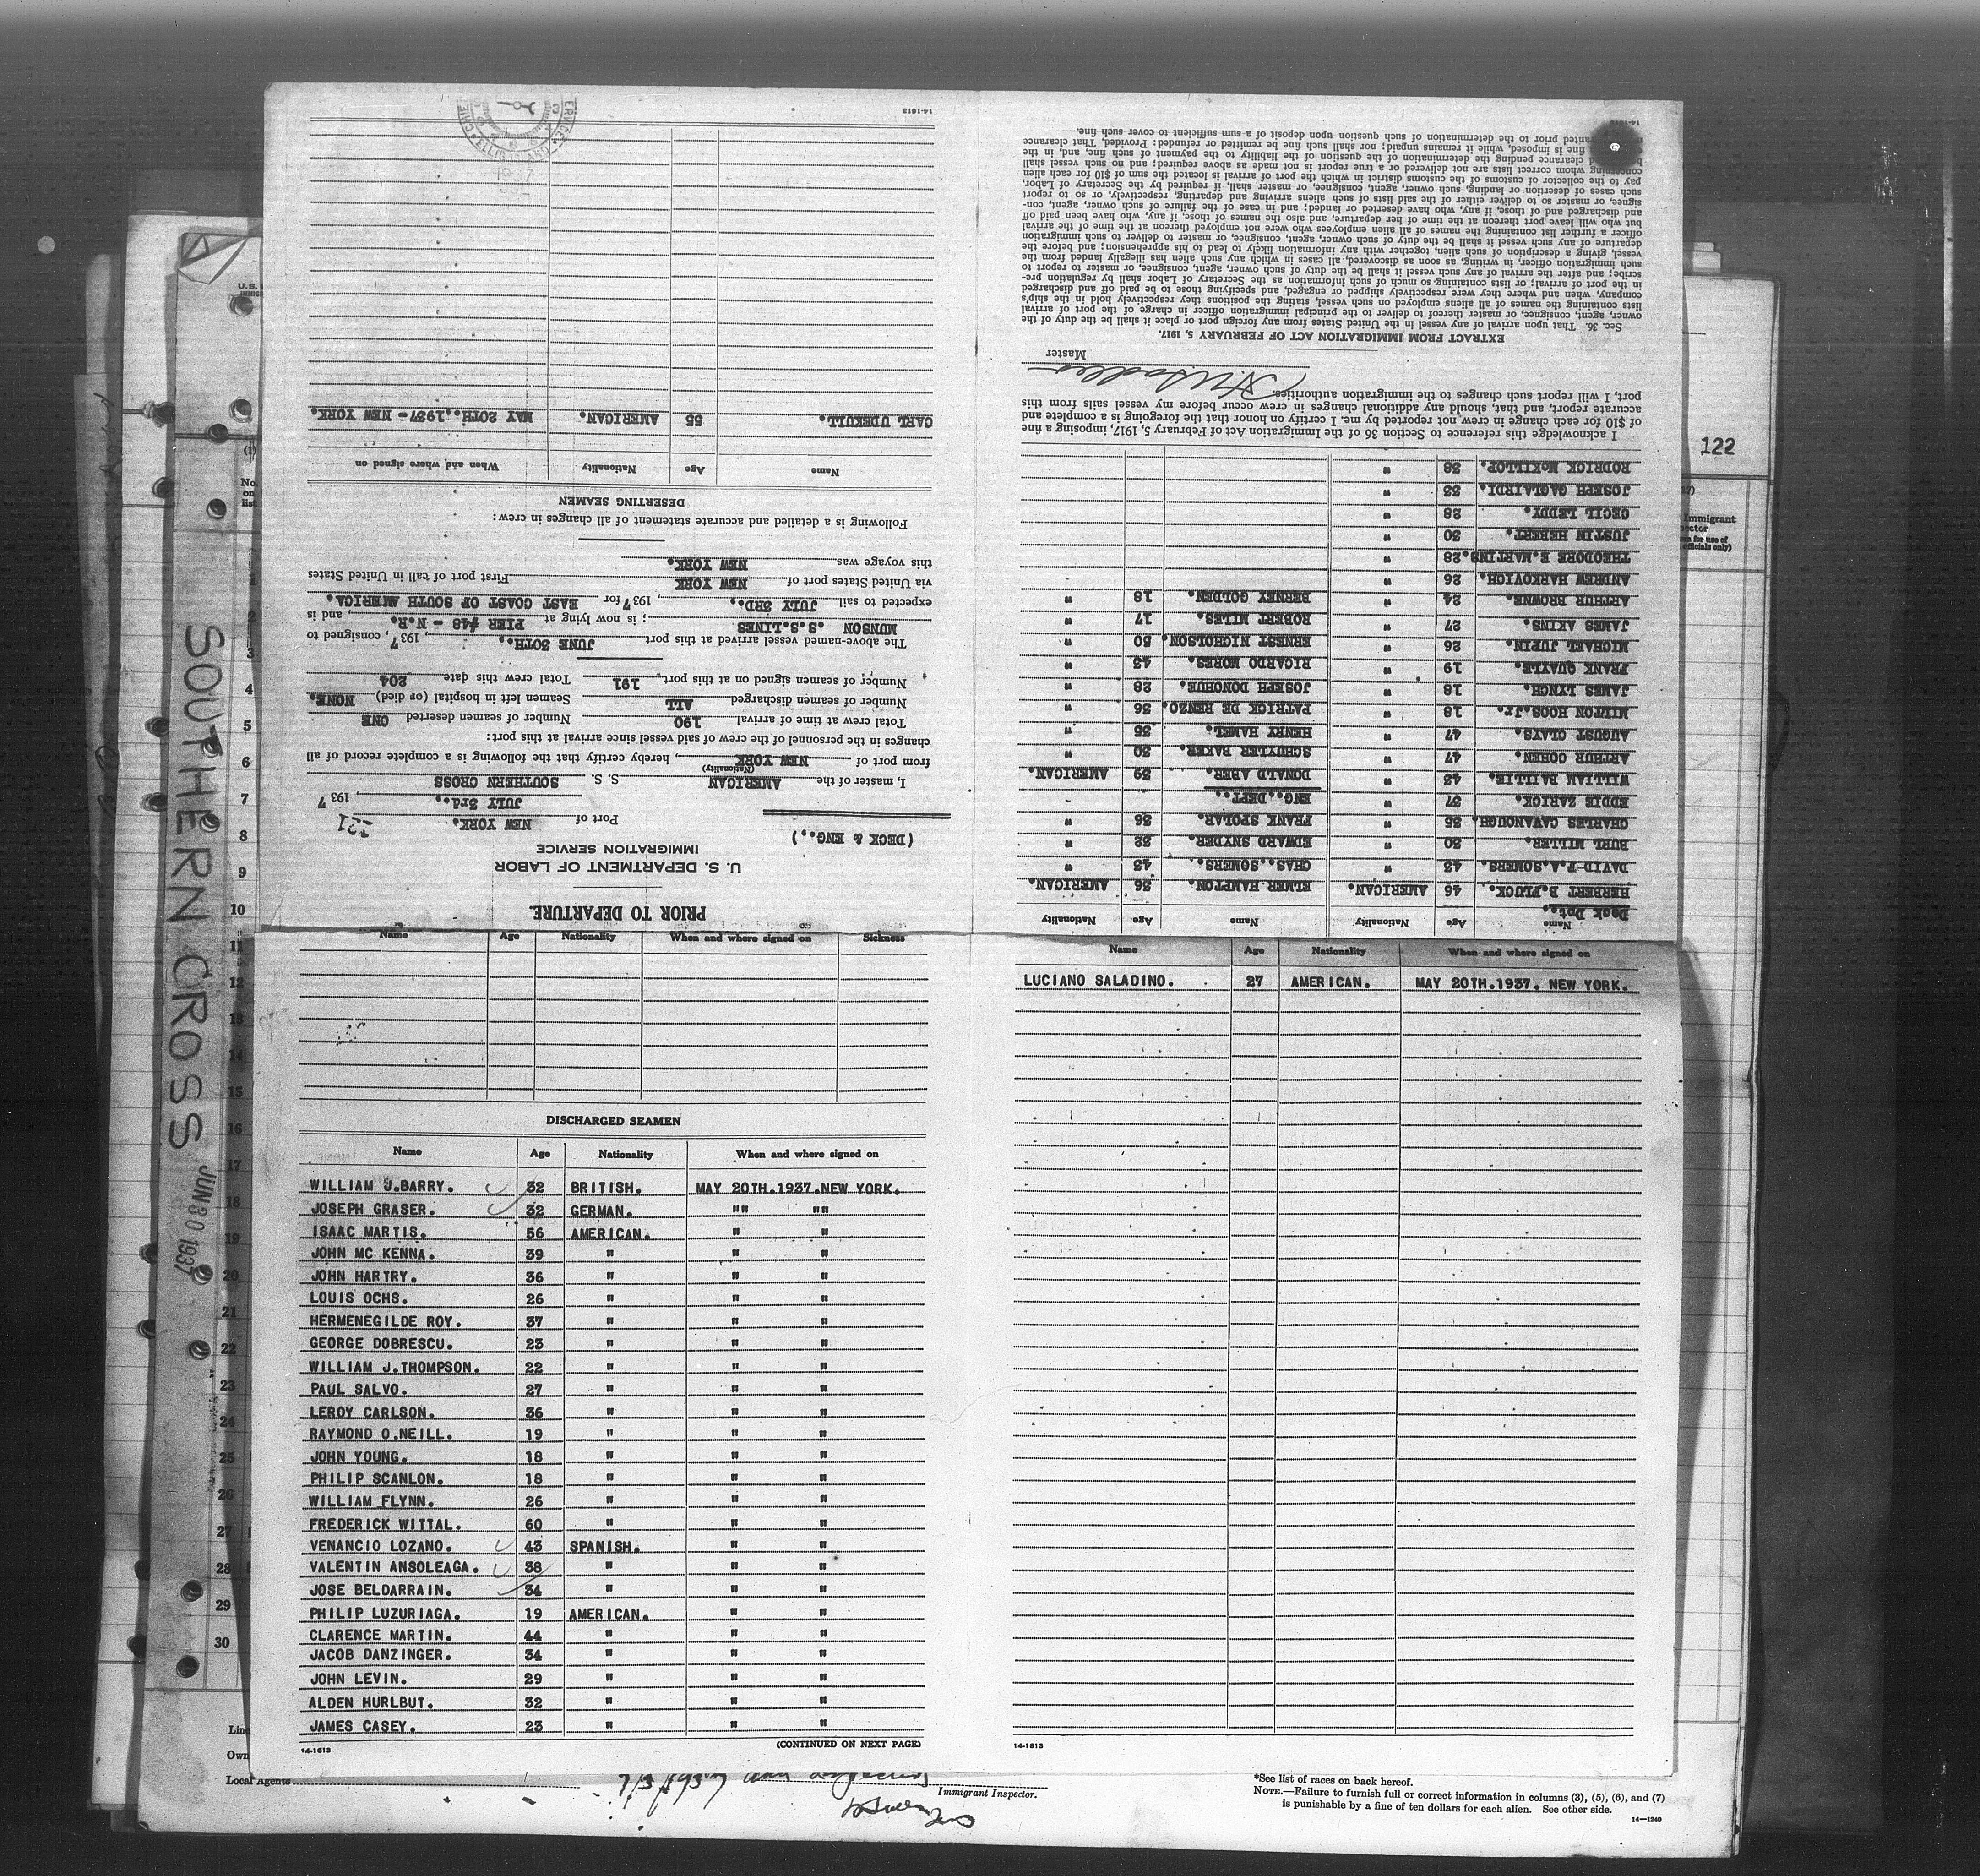 PRIOR TO DEPARTURE.
U. S. DEPARTMENT OF LABOR
IMMIGRATION SERVICE
(DECK & ENG..)
Port of NEW YORK.
JULY 3rd., 1937
I, master of the AMERICAN S. S. SOUTHERN CROSS
(Nationality)
from port of NEW YORK, hereby certify that the following is a complete record of all
changes in the personnel of the crew of said vessel since arrival at this port:
Total crew at time of arrival 190 Number of seamen deserted ONE
Number of seamen discharged ALL Seamen left in hospital (or died) NONE.
Number of seamen signed on at this port, 191 Total crew this date 204
The above-named vessel arrived at this port JUNE 30TH., 1937, consigned to
MUNSON S.S.LINES; is now lying at PIER #48 - N.R., and is
expected to sail JULY 3RD., 1937 for EAST COAST OF SOUTH AMERICA.
via United States port of NEW YORK First port of call in United States
this voyage was NEW YORK.
Following is a detailed and accurate statement of all changes in crew:
DESERTING SEAMEN
Name Age Nationality When and where signed on
CARL UDEKULL. 55 AMERICAN. MAY 20TH., 1937- NEW YORK.
14-1613
Name Age Nationality Name Age Nationality
Deck Dpt.
HERBERT B.FLUCK. 46 AMERICAN. ELMER HAMPTON. 36 AMERICAN.
DAVID F.A.SOMERS. 43 " CHAS. SOMERS. 43 "
BURL MILLER. 30 " EDWARD SNYDER. 32 "
CHARLES CAVANOUGH. 35 " FRANK SPOLAR. 36 "
EDDIE ZARICK. 37 " ENG. DEPT.
WILLIAM BAILLIE. 43 " DONALD ABER. 39 AMERICAN.
ARTHUR COHEN. 47 " SCHUYLER BAKER. 30 "
AUGUST CLAYS. 47 " HENRY HAMEL. 35 "
MILTON HOOS.Jr. 18 " PATRICK DE RENZO. 36 "
JAMES LYNCH. 18 " JOSEPH DONOHUE. 28 "
FRANK QUAYLE. 19 " RICARDO MORES. 43 "
MICHAEL JUPIN. 26 " ERNEST NICHOLSON. 50 "
JAMES AKINS. 27 " ROBERT MILES. 17 "
ARTHUR BROWNE. 24 " BERNEY GOLDEN. 18 "
ANDREW HARKOVICH. 26 "
THEODORE E.MARTINS. 28 "
JUSTIN HEBERT. 30 "
CECIL LEDDY. 28 "
JOSEPH GAGLAIRDI. 33 "
RODRICK McKILLOP. 38 "
I acknowledge this reference to Section 36 of the Immigration Act of February 5, 1917, imposing a fine
of $10 for each change in crew not reported by me. I certify on honor that the foregoing is a complete and
accurate report, and that, should any additional changes in crew occur before my vessel sails from this
port, I will report such changes to the immigration authorities.
Master
EXTRACT FROM IMMIGRATION ACT OF FEBRUARY 5, 1917.
Sec. 36. That upon arrival of any vessel in the United States from any foreign port or place it shall be the duty of the
owner, agent, consignee, or master thereof to deliver to the principal immigration officer in charge of the port of arrival
lists containing the names of all aliens employed on such vessel, stating the positions they respectively hold in the ship's
company, when and where they were respectively shipped or engaged, and specifying those to be paid off and discharged
in the port of arrival; or lists containing so much of such information as the Secretary of Labor shall by regulation pre-
scribe; and after the arrival of any such vessel it shall be the duty of such owner, agent, consignee, or master to report to
such immigration officer, in writing, as soon as discovered, all cases in which any such alien has illegally landed from the
vessel, giving a description of such alien, together with any information likely to lead to his apprehension; and before the
departure of any such vessel it shall be the duty of such owner, agent, consignee, or master to deliver to such immigration
officer a further list containing the names of all alien employees who were not employed thereon at the time of the arrival
but who will leave port thereon at the time of her departure, and also the names of those, if any, who have been paid off
and discharged and of those, if any, who have deserted or landed; and in case of the failure of such owner, agent, con-
signee, or master so to deliver either of the said lists of such aliens arriving and departing, respectively, or so to report
such cases of desertion or landing, such owner, agent, consignee, or master shall, if required by the Secretary of Labor,
pay to the collector of customs of the customs district in which the port of arrival is located the sum of $10 for each alien
concerning whom correct lists are not delivered or a true report is not made as above required; and no such vessel shall
clearance pending the determination of the question of the liability to the payment of such fine, and, in the
fine is imposed, while it remains unpaid; nor shall such fine be remitted or refunded: Provided, That clearance
granted prior to the determination of such question upon deposit of a sum sufficient to cover such fine.
122
SOUTHERN CROSS JUN 30 1937
Name Age Nationality When and where signed on Sickness
DISCHARGED SEAMEN
Name Age Nationality When and where signed on
WILLIAM J.BARRY. 32 BRITISH. MAY 20TH.1937.NEW YORK.
JOSEPH GRASER. 32 GERMAN. "" ""
ISAAC MARTIS. 56 AMERICAN. " "
JOHN MC KENNA. 39 " " "
JOHN HARTRY. 36 " " "
LOUIS OCHS. 26 " " "
HERMENEGILDE ROY. 37 " " "
GEORGE DOBRESCU. 23 " " "
WILLIAM J.THOMPSON. 22 " " "
PAUL SALVO. 27 " " "
LEROY CARLSON. 36 " " "
RAYMOND O.NEILL. 19 " " "
JOHN YOUNG. 18 " " "
PHILIP SCANLON. 18 " " "
WILLIAM FLYNN. 26 " " "
FREDERICK WITTAL. 60 " " "
VENANCIO LOZANO. 43 SPANISH. " "
VALENTIN ANSOLEAGA. 38 " " "
JOSE BELDARRAIN. 34 " " "
PHILIP LUZURIAGA. 19 AMERICAN. " "
CLARENCE MARTIN. 44 " " "
JACOB DANZINGER. 34 " " "
JOHN LEVIN. 29 " " "
ALDEN HURLBUT. 32 " " "
JAMES CASEY. 23 " " "
14-1613 (CONTINUED ON NEXT PAGE)
Name Age Nationality When and where signed on
LUCIANO SALADINO. 27 AMERICAN. MAY 20TH.1937. NEW YORK.
14-1613
Local Agents
Immigrant Inspector.
*See list of races on back hereof.
NOTE.—Failure to furnish full or correct information in columns (3), (5), (6), and (7)
is punishable by a fine of ten dollars for each alien. See other side.
14—1240